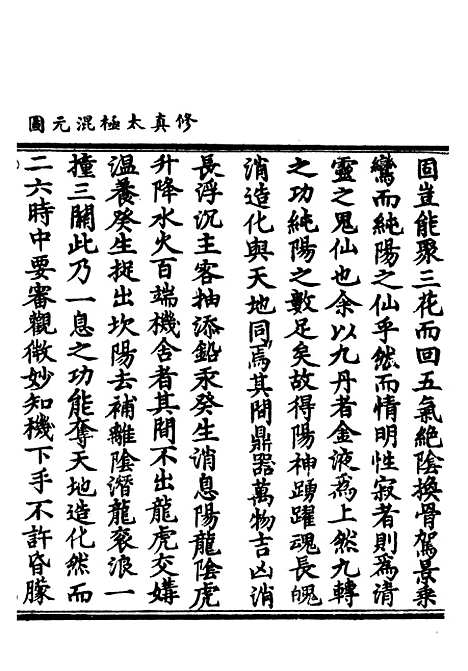 修真太極混元圖
固豈能聚三花而回五氣絶陰換骨駕景乗
鸞而純陽之仙乎然而情明性寂者則爲清
靈之鬼仙也余以九丹者金液爲上然九轉
之功純陽之數足矣故得陽神踴躍魂長魄
消造化與天地同焉其間鼎器萬物吉凶消
長浮沉主客抽添鉛汞癸生消息陽龍陰虎
升降水火百端機舍者其間不出龍虎交媾
温養癸生捉出坎陽去補離陰潛龍衮浪一
撞三關此乃一息之功能奪天地造化然而
二六時中要審觀微妙知機下手不許昏朦